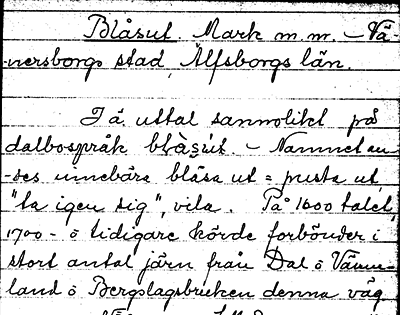 Blåsut. Mark m.m. – Vä-
-nersborgs stad, Älfsborgs län.
I ä. uttal sannolikt på
dalbospråk blàsút. – Namnet an-
-ses innebära blåsa ut = pusta ut,
"ta igen sig", vila. På 1600 talet,
1700- o tidigare körde forbönder i
stort antal järn från Dal o Värm-
land o Bergslagsbruken denna väg